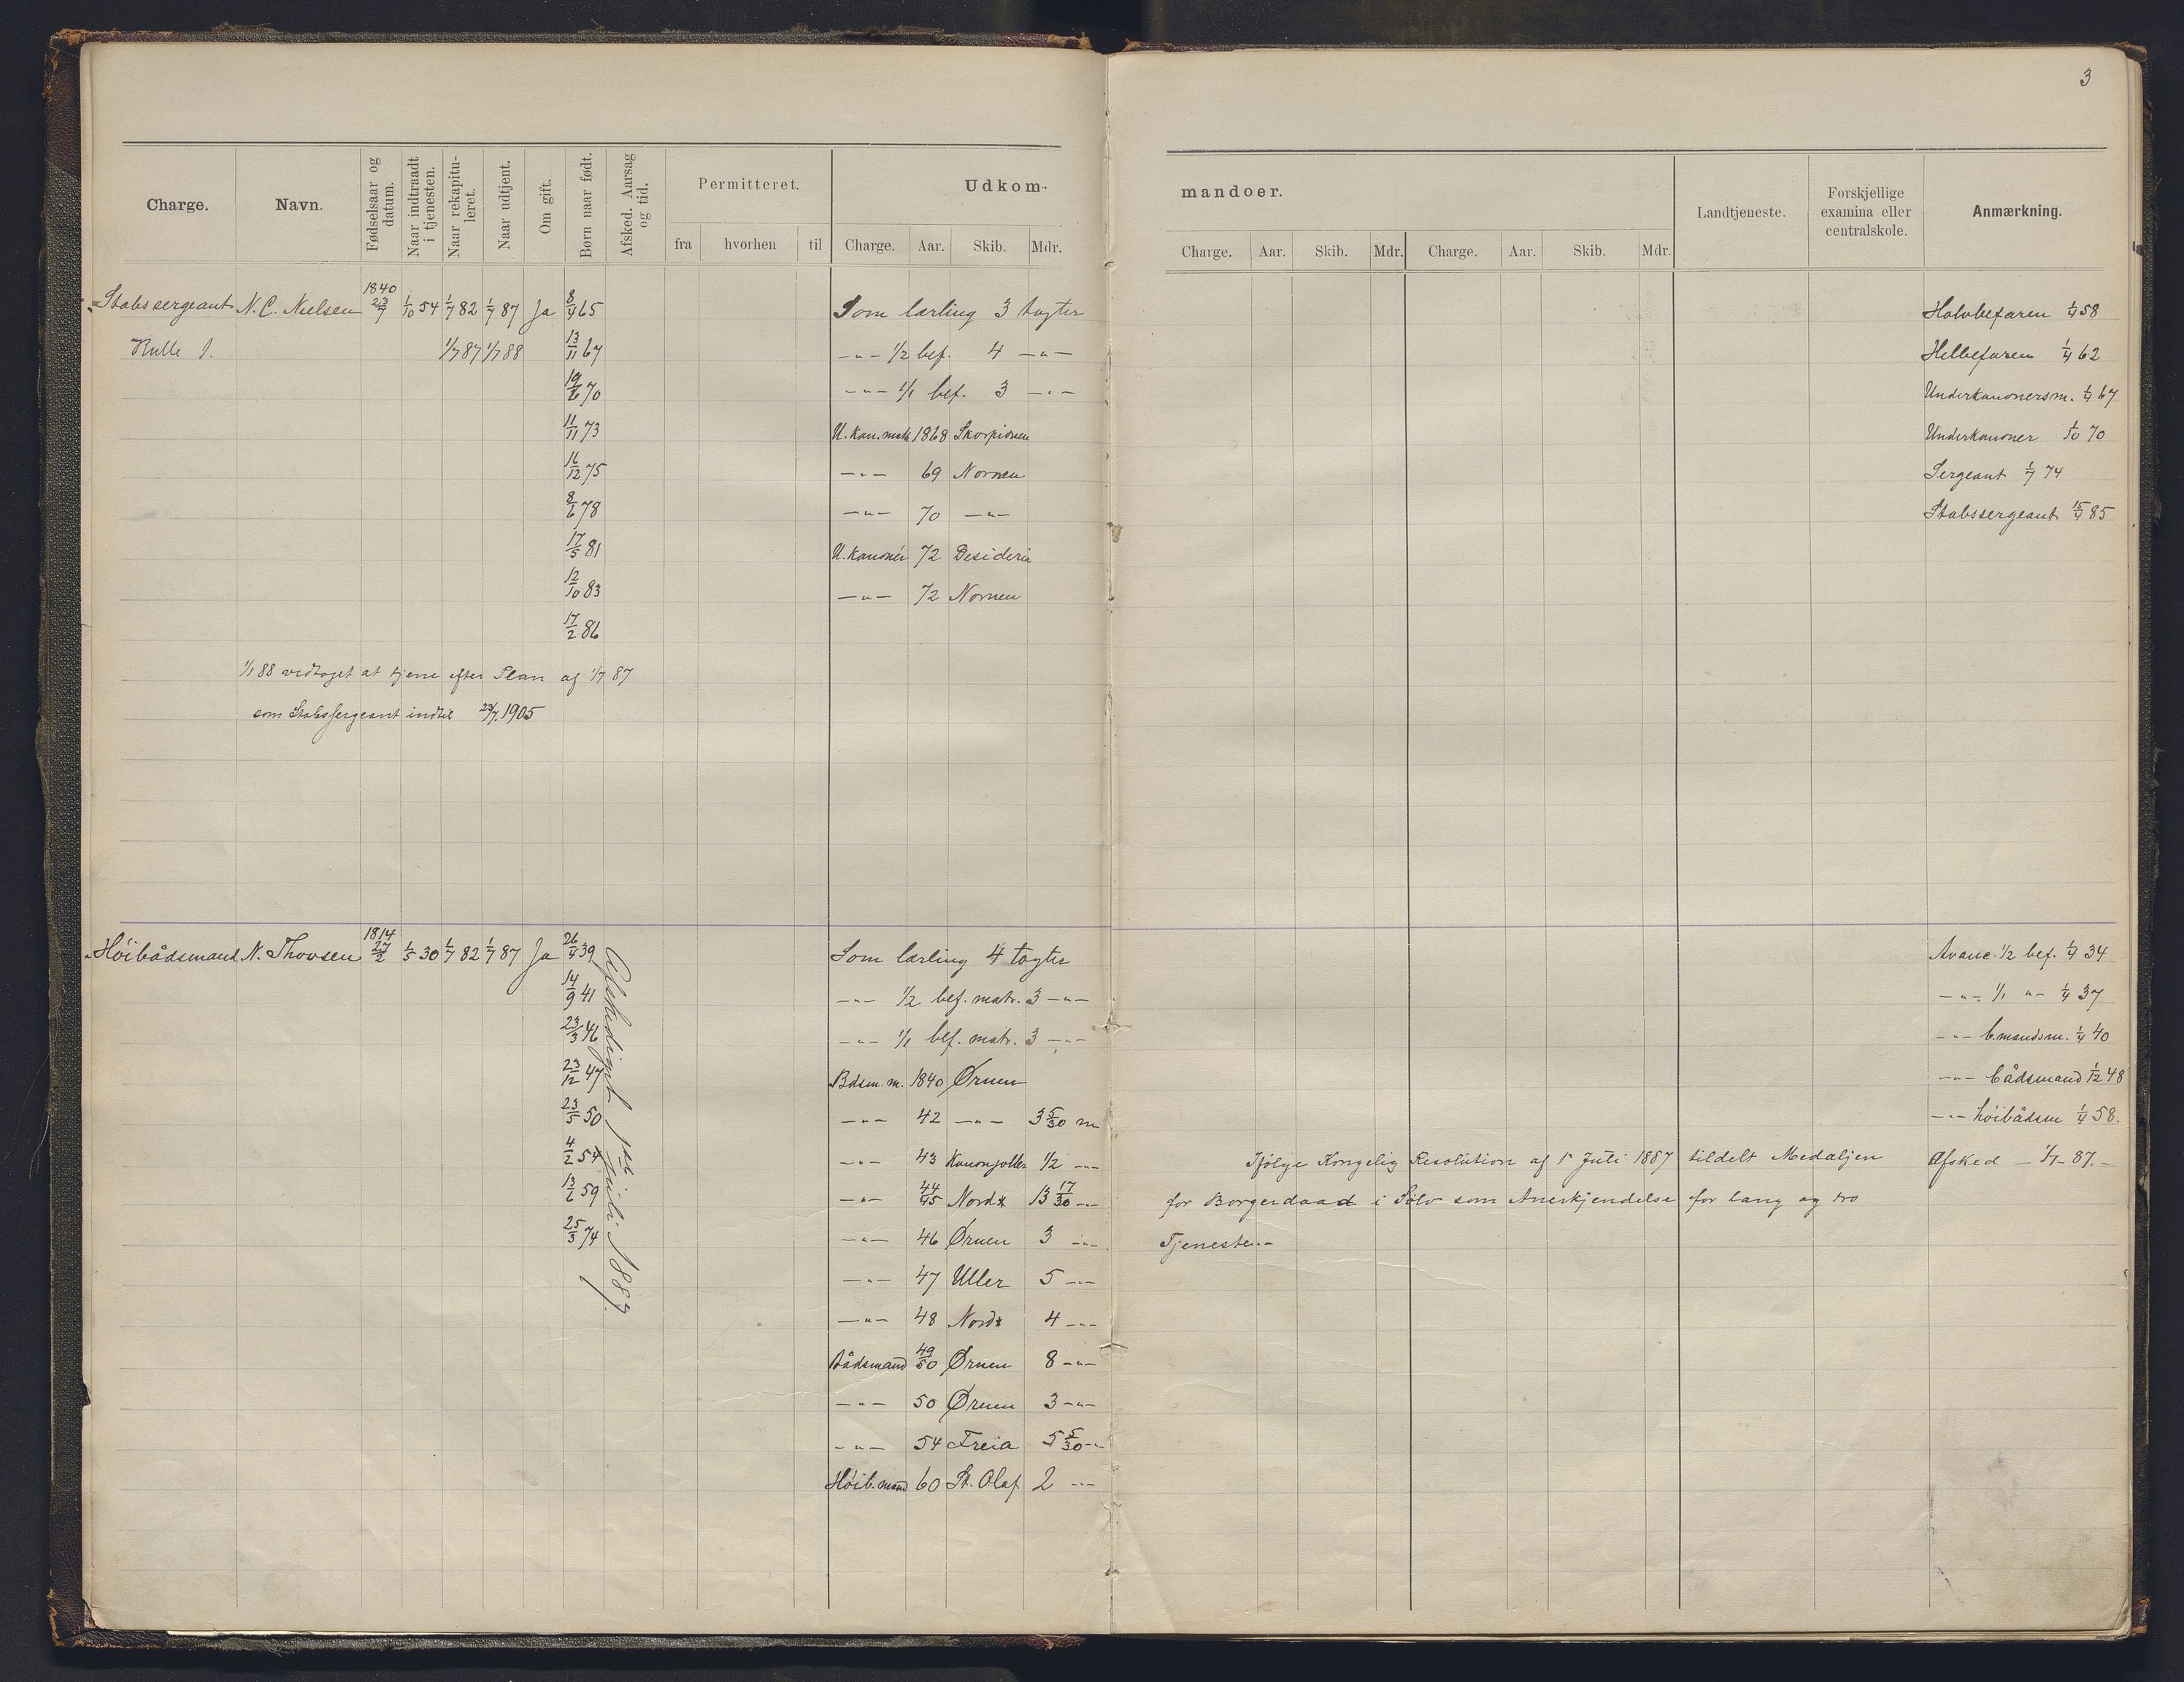 3
Charge. Navn. Fødselsaar og datum. Naar indtraadt i tjenesten. Naar rekapituleret. Naar udtjent. Om gift. Børn naar født. Afsked. Aarsag og tid. Permitteret. Udkommandoer. Landtjeneste. Forskjellige examina eller centralskole. Anmærkning.
fra hvorhen til Charge. Aar. Skib. Mdr. Charge. Aar. Skib. Mdr. Charge. Aar. Skib. Mdr.
1840
Stabssergeant N. C. Nielsen 23/7 1/10 54 1/7 82 1/7 87 Ja 8/4 65 Som lærling 3 togter Halvbefaren 1/4 58
Rulle 1. 1/7 87 1/7 88 13/11 67 -"- 1/2 bef. 4 -"- Helbefaren 1/4 62
19/6 70 -"- 1/1 bef. 3 -"- Underkanonersm. 1/4 67
11/11 73 U. kan. math 1868 Skorpionen Underkanoner 1/10 70
16/12 75 -"- 69 Nornen Sergeant 1/7 74
8/6 78 -"- 70 -"- Stabssergeant 15/4 85
17/5 81 U. kanonér 72 Desideria
12/10 83 -"- 72 Nornen
17/2 86
1/1 88 vedtaget at tjene efter Plan af 1/7 87
som Stabssergeant indtil 23/7 1905
1814
Høibådsmand N. Thovsen 27/2 1/5 30 1/7 82 1/7 87 Ja 26/4 39 Som lærling 4 togter Avanc. 1/2 bef. 1/4 34
14/9 41 -"- 1/2 bef. matr. 3 -"- -"- 1/1 -"- 1/4 37
23/3 46 -"- 1/1 bef. matr. 3 -"- -"- b.mandsm. 1/4 40
23/12 47 Bdsm. m. 1840 Ørnen -"- bådsmand 1/12 48
23/5 50 -"- 42 -"- 3 5/30 m -"- høibådsm 1/4 58.
4/2 54 -"- 43 Kanonjoller 1/2 -"- Ifølge Kongelig Resolution af 1' Juli 1887 tildelt Medaljen Afsked - 1/7 - 87.-
13/6 59 -"- 44/45 Nords 13 17/30 -"- for Borgerdaad i Sølv som Anerkjendelse for lang og tro
25/3 74 -"- 46 Ørnen 3 -"- Tjeneste.-
Afskediget 1ste Juli 1887.
-"- 47 Uller 5 -"-
-"- 48 Nords 4 -"-
Bådsmand 49/50 Ørnen 8 -"-
-"- 50 Ørnen 3 -"-
-"- 54 Freia 5 5/30 -"-
Høib.mand 60 St. Olaf 2 -"-